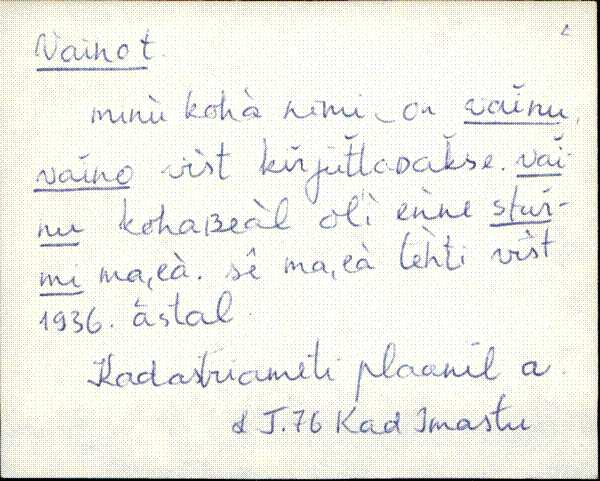 Vainot.
minù kohà nimi on vaĭnu,
vaĭno vìst kìrjùttaDakse. vaĭ-
nu kohaBeàl olì enne stur-
mi ma,eà. sê ma,eà tèhti vìst
1936. āstal.
Kadastriameti plaanil a.
d T.76 Kad Imastu